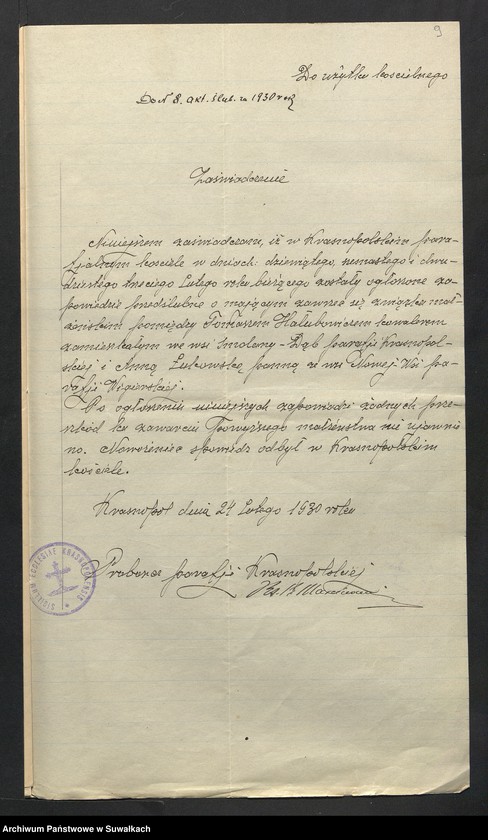 9
Do użytku kościelnego
Do N 8. akt. ślub. za 1930 rok
Zaświadczenie
Niniejszem zaświadczam, iż w Krasnopolskim para-
fjalnym kościele w dniach: dziewiątego, szesnastego i dwu-
dziestego trzeciego Lutego roku bieżącego zostały ogłoszone za-
powiedzie przedślubne o mającym zawrzeć się związku mał-
żeńskim pomiędzy Tomaszem Hałubowiczem kawalerem
zamieszkałym we wsi Smolany-Dąb parafji Krasnopol-
skiej i Anną Lutowską panną ze wsi Nowej-Wsi pa-
rafji Wigierskiej.
Po ogłoszeniu niniejszych zapowiedzi żadnych prze-
szkód ku zawarciu Powyższego małżeństwa nie ujawnio
no. Nowożeniec spowiedź odbył w Krasnopolskim
kościele.
Krasnopol dnia 24 Lutego 1930 roku
Proboszcz parafji Krasnopolskiej
Ks. K
SIGILLUM ECCLESIAE KRASNOPOLENSIS
Archiwum Państwowe w Suwałkach